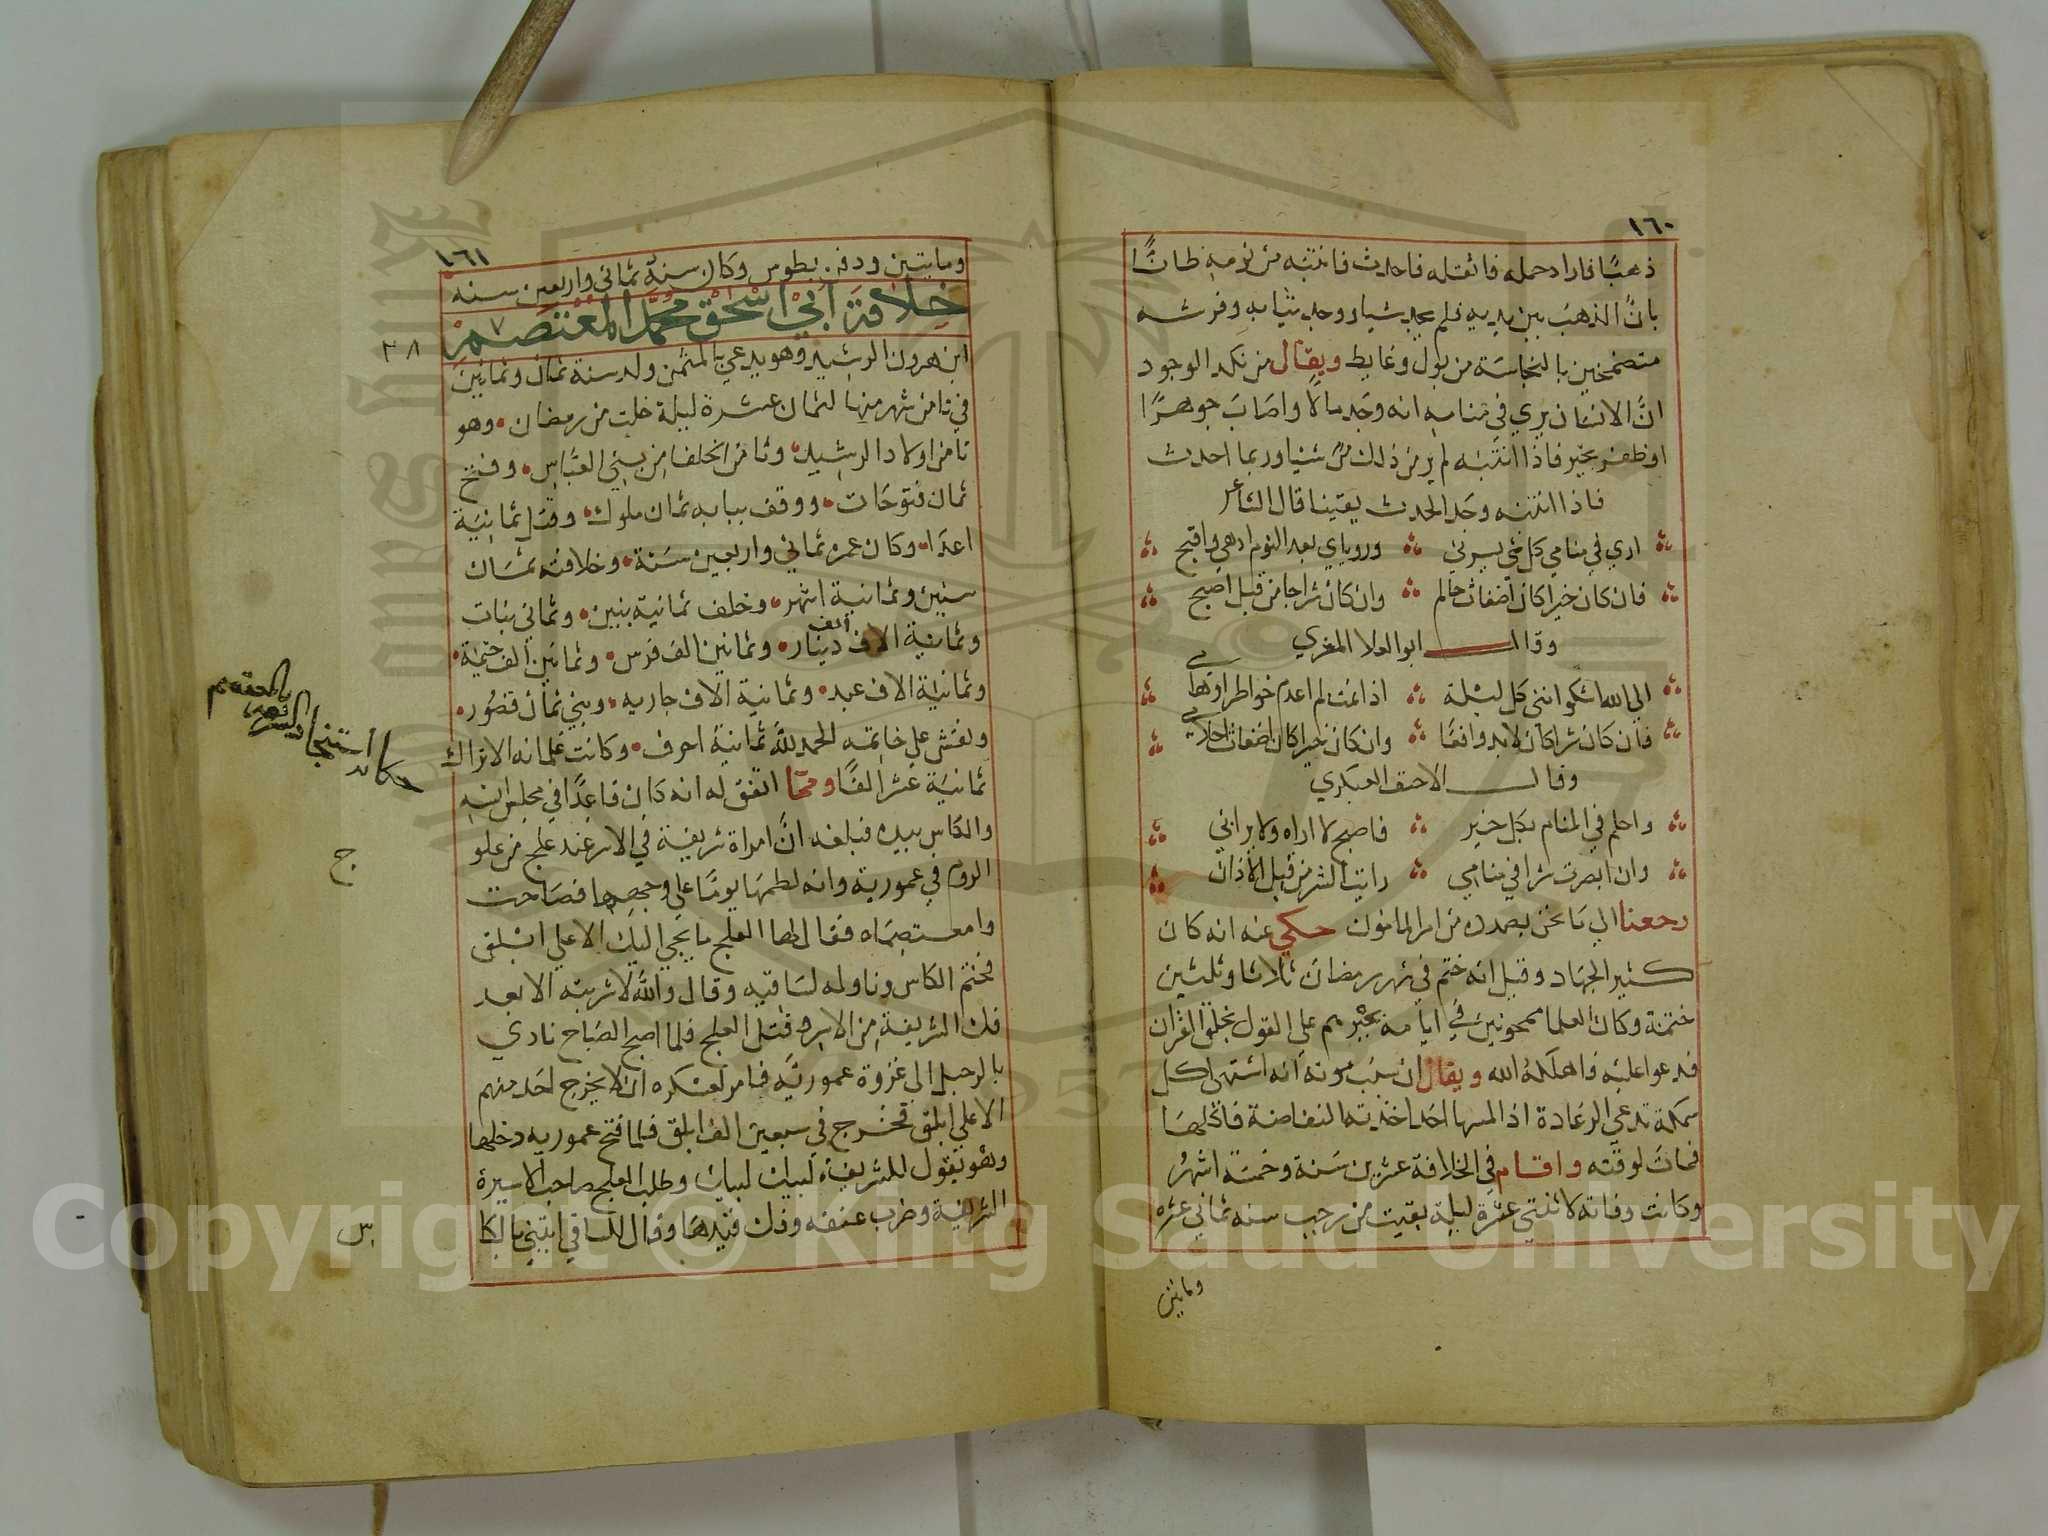 ١٦٠
ذهبًا فاراد حمله فاثقله فاحدث فانتبه من نومه ظانًّا
بانّ الذهب بين يديه فلم يجد شيا ووجد ثيابه وفرشه
متضمخين بالنجاسة من بول وغايط ويقال من نكد الوجود
انّ الانسان يري في منامه انه وجد مالًا واصاب جوهرًا
او ظفر بخير فاذا انتبه لم ير من ذلك شيا وربما احدث
فاذا انتبه وجد الحدث يقينا قال الشاعر
اري في منامي كل شي يسرني وروياي بعد النوم ادهي واقبح
فان كان خيرا كان اضغاث حالم وان كان شرا جا من قبل اصبح
وقال ابو العلا المعري
الي الله اشكو انني كل ليلة اذا نمت لم اعدم خواطر اوهامي
فان كان شرا كان لا بد واقعًا وان كان خيرا كان اضغاث احلامي
وقال الاحنف العكبري
واحلم في المنام بكل خير فاصبح لا اراه ولا يراني
وان ابصرت شرا في منامي رايت الشر من قبل الاذان
رجعنا الي ما نحن بصدده من امر المامون حكي عنه انه كان
كثير الجهاد وقيل انه ختم في شهر رمضان ثلاثا وثلثين
ختمة وكان العلما ممحونين في ايامه يجبرهم علي القول بخلق القران
فدعوا عليه فاهلكه الله ويقال ان سبب موته انه اشتهي اكل
سمكة تدعي الرعادة اذا لمسها احد اخذته النفاضة فاكلها
فمات لوقته واقام في الخلافة عشرين سنة وخمسة اشهر
وكانت وفاته لاثنتي عشرة ليلة بقيت من رجب سنه ثماني عشره
ومايتين
١٦١
ومايتين ودفن بطوس وكان سنه ثماني واربعين سنه
خلافة ابي اسحق محمد المعتصم
٧
٣٨
ابن هرون الرشيد وهو يدعي بالمثمن ولد سنة ثمان وثمانين
في ثامن شهر منها لثمان عشرة ليلة خلت من رمضان وهو
ثامن اولاد الرشيد وثامن الخلفا من بني العباس وفتح
ثمان فتوحات ووقف ببابه ثمان ملوك وقتل ثمانية
اعدا وكان عمره ثماني واربعين سنة وخلافته ثمان
سنين وثمانية اشهر وخلف ثمانية بنين وثماني بنات
وثمانية الاف الف دينار وثمانين الف فرس وثمانين الف خيمة
وثمانية الاف عبد وثمانية الاف جاريه وبني ثمان قصور
ونقش علي خاتمه الحمد لله ثمانية احرف وكانت غلمانه الاتراك
ثمانية عشر الفًا ومما اتفق له انه كان قاعدًا في مجلس انسه
والكاس بيده فبلغه انّ امراة شريفة في الاسر عند علج من علو
الروم في عمورية وانه لطمها يومًا علي وجهها فصاحت
وامعتصماه فقال لها العلج ما يجي اليك الا علي ابلق
فختم الكاس وناوله لساقيه وقال والله لا شربته الا بعد
فك الشريفة من الاسر وقتل العلج فلما اصبح الصباح نادي
بالرحيل الي غزوة عمورية فامر لعسكره ان لا يخرج احد منهم
الا علي ابلق فخرج في سبعين الف ابلق فلما فتح عموريه دخلها
وهو يقول للشريفة لبيك لبيك وطلب العلج صاحب الاسيرة
الشريفة وضرب عنقه وفك قيدها وقال للساقي ايتيني بالكا
حكاية استنجاد
بالمعتصم
ج
س
Copyright © King Saud University